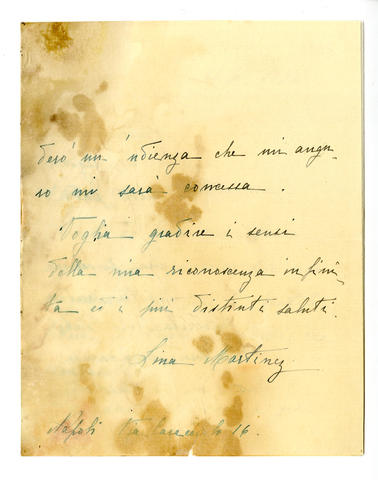 derò un'udienza che mi augu-
ro mi sarà concessa.
Voglia gradire i sensi
della mia riconoscenza infini-
ta ed i più distinti saluti.
Lina Martinez
Napoli Via 16.